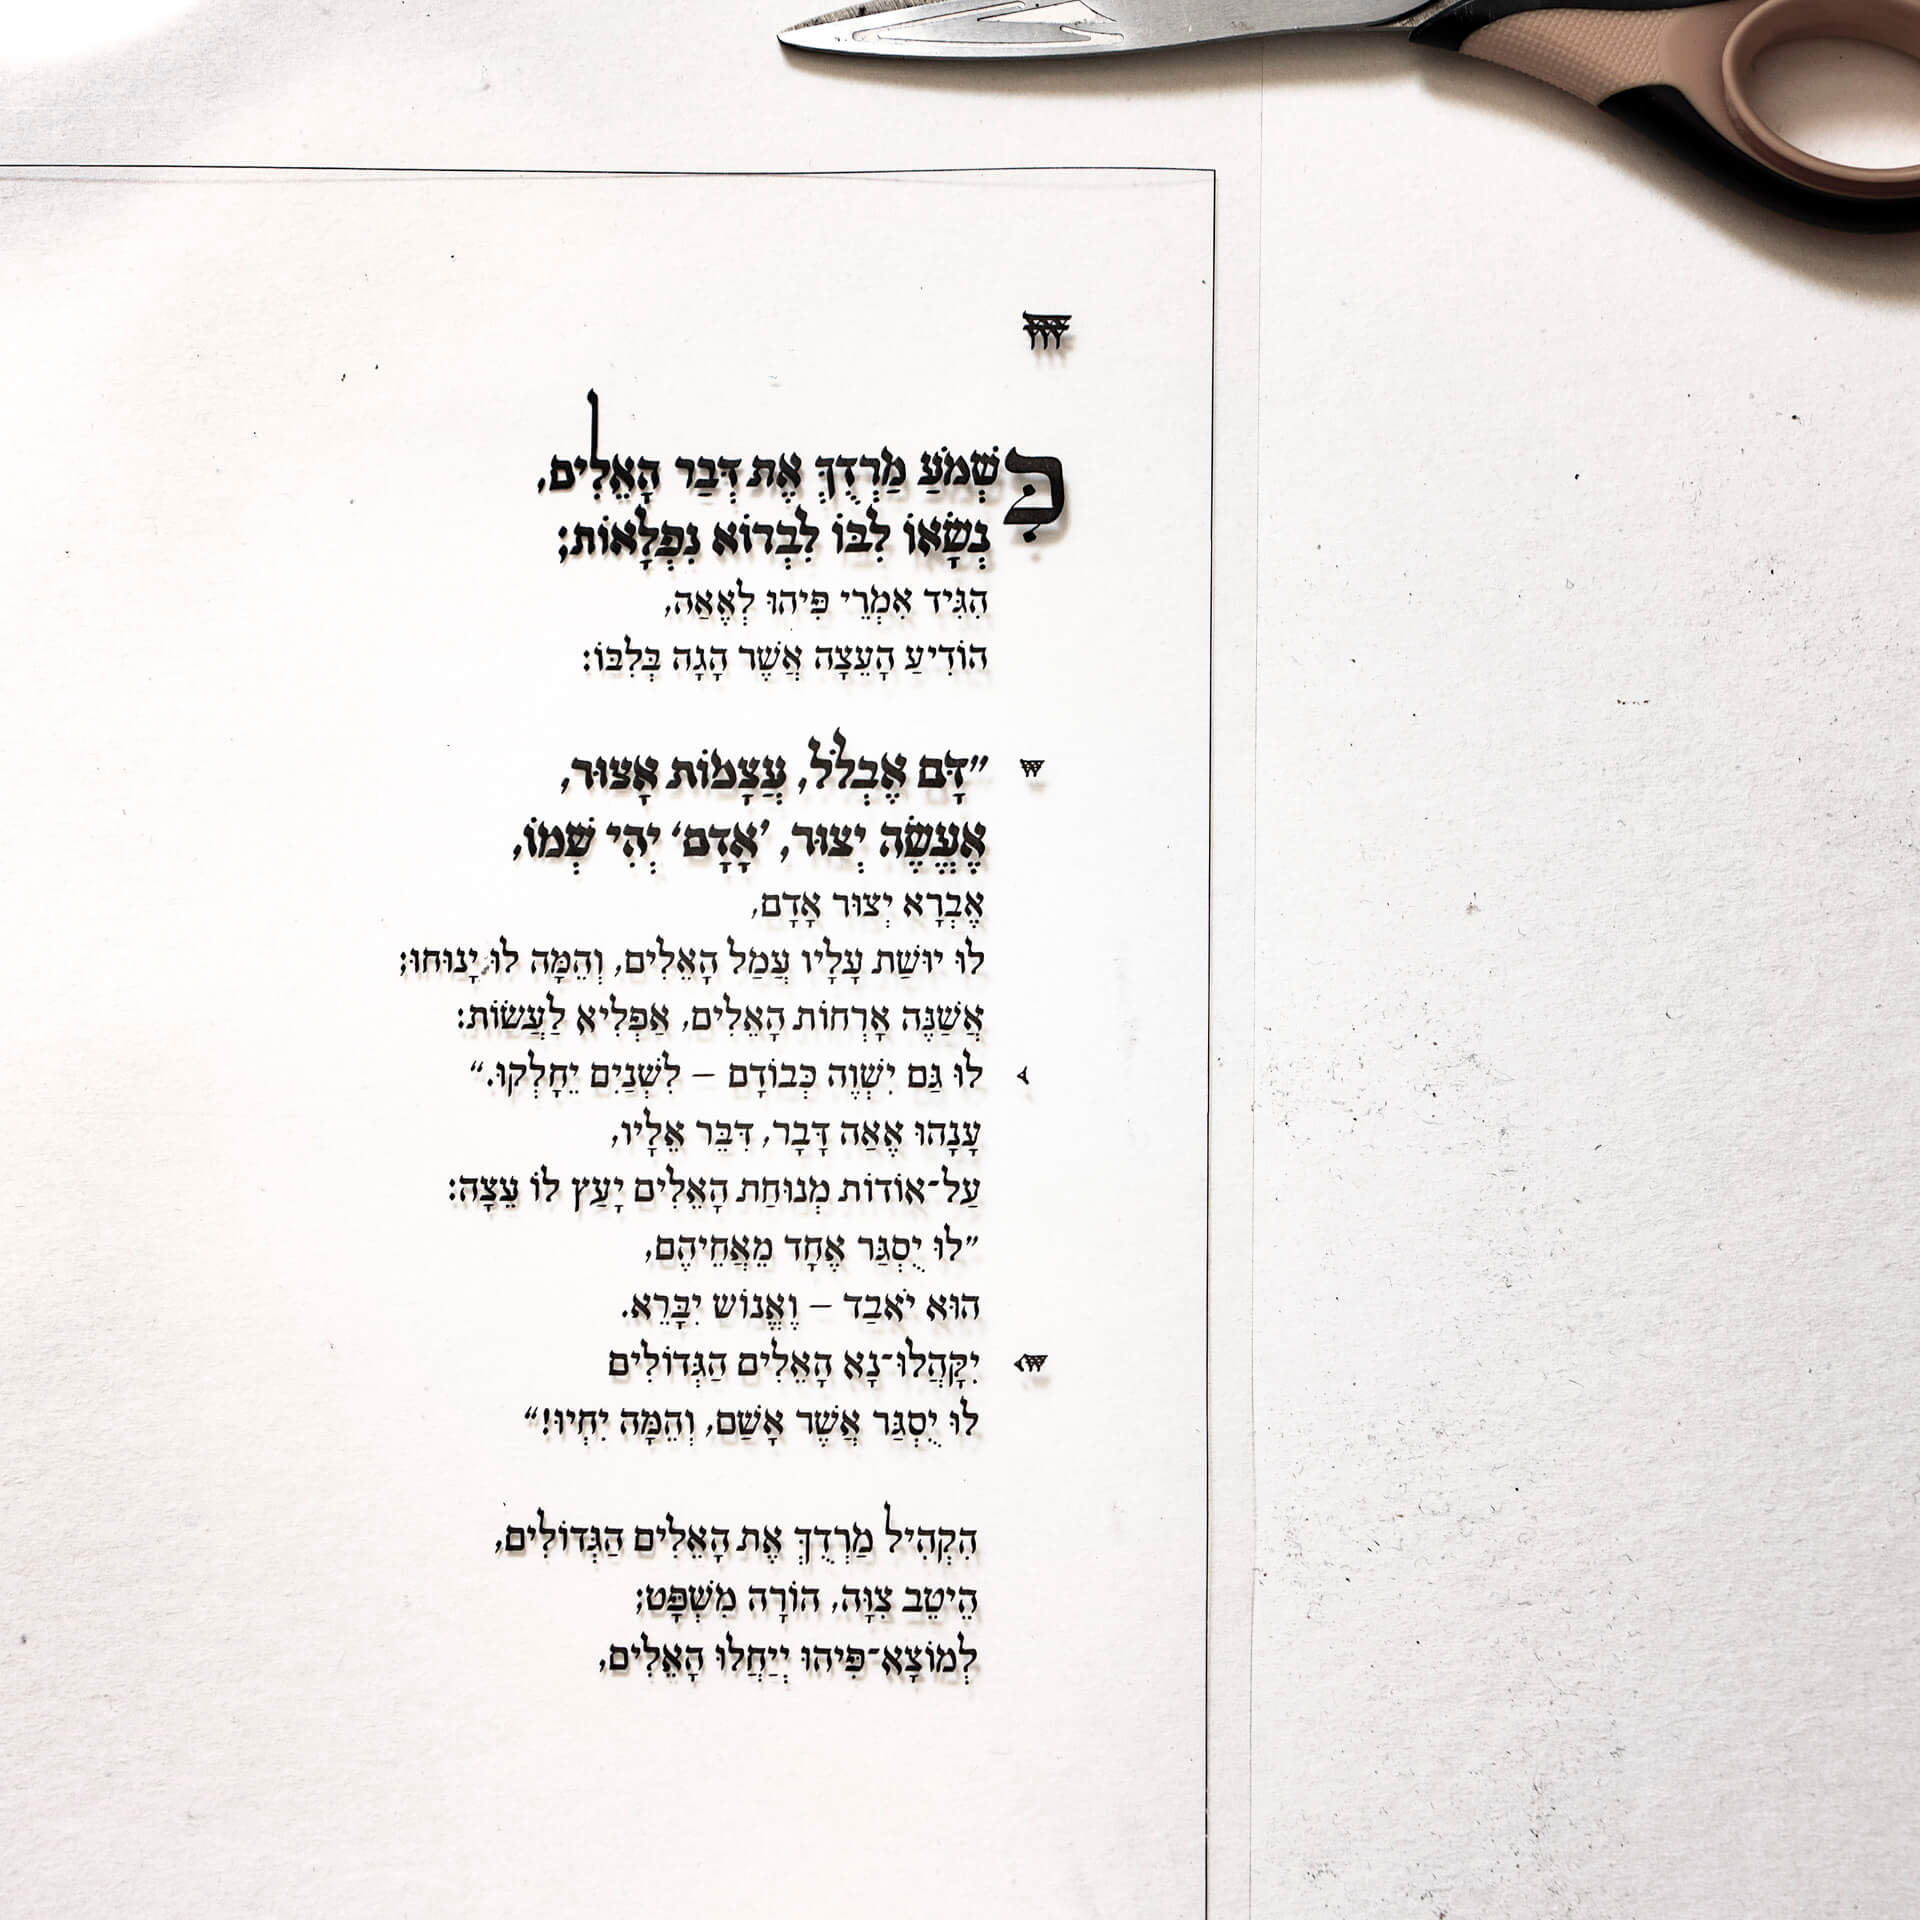 כִּשְׁמֹעַ מַרְדֻךְ אֶת דְּבַר הָאֵלִים,
נְשָׂאוֹ לִבּוֹ לִבְרוֹא נִפְלָאוֹת;
הִגִּיד אִמְרֵי פִּיהוּ לְאֶאַה,
הוֹדִיעַ הָעֵצָה אֲשֶׁר הָגָה בְּלִבּוֹ:
״דָּם אֶבְלֹל, עֲצָמוֹת אָצוּר,
אֶעֱשֶׂה יְצוּר, ׳אָדָם׳ יְהִי שְׁמוֹ,
אֶבְרָא יְצוּר אָדָם,
לוּ יוּשַׁת עָלָיו עֲמַל הָאֵלִים, וְהֵמָּה לוּ יָנוּחוּ;
אֲשַׁנֶּה אָרְחוֹת הָאֵלִים, אַפְלִיא לַעֲשׂוֹת:
לוּ גַּם יִשְׁוֶה כְּבוֹדָם – לִשְׁנַיִם יֵחָלְקוּ.״
עָנָהוּ אֶאַה דָּבָר, דִּבֵּר אֵלָיו,
עַל־אוֹדוֹת מְנוּחַת הָאֵלִים יָעַץ לוֹ עֵצָה:
״לוּ יֻסְגַּר אֶחָד מֵאֲחֵיהֶם,
הוּא יֹאבַד – וֶאֱנוֹשׁ יִבָּרֵא.
יִקָּהֲלוּ־נָא הָאֵלִים הַגְּדוֹלִים
לוּ יֻסְגַּר אֲשֶׁר אָשַׁם, וְהֵמָּה יִחְיוּ!״
הִקְהִיל מַרְדֻךְ אֶת הָאֵלִים הַגְּדוֹלִים,
הֵיטֵב צִוָּה, הוֹרָה מִשְׁפָּט;
לְמוֹצָא־פִּיהוּ יְיַחֲלוּ הָאֵלִים,